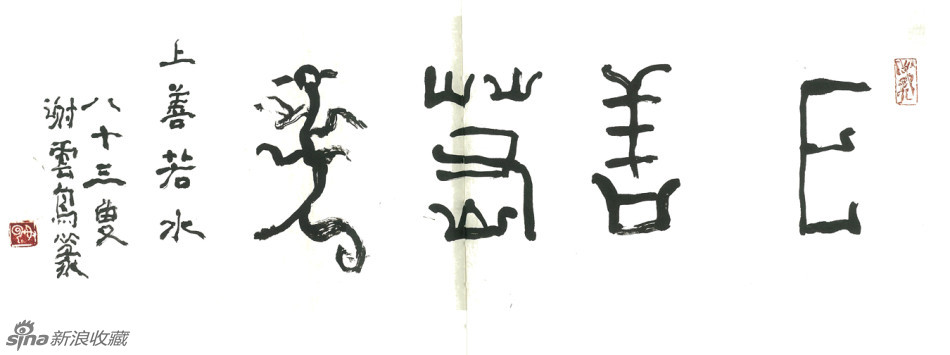 上善若水
上善若水
八十三叟
谢云鸟篆
sina新浪收藏